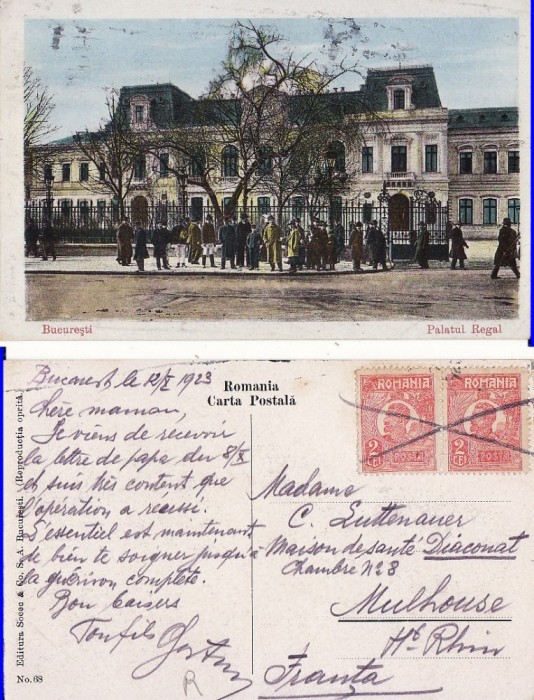 Bucureşti
Palatul Regal
Romania
Carta Postală
ROMANIA
2
LEI
POSTA
ROMANIA
2
LEI
POSTA
Bucarest le 12/X 1923
Chère maman,
Je viens de recevoir
la lettre de papa du 8/X
et suis très content que
l'opération a réussi.
L'essentiel est maintenant
de bien te soigner jusqu'à
la guérison complète.
Bon baisers
Ton fils
Madame
C. Luttenauer
Maison de santé Diaconat
Chambre No 8
Mulhouse
Ht Rhin
Franţa
Editura Socec & Co. S. A. Bucureşti. (Reproducţia oprită.)
No. 68
R